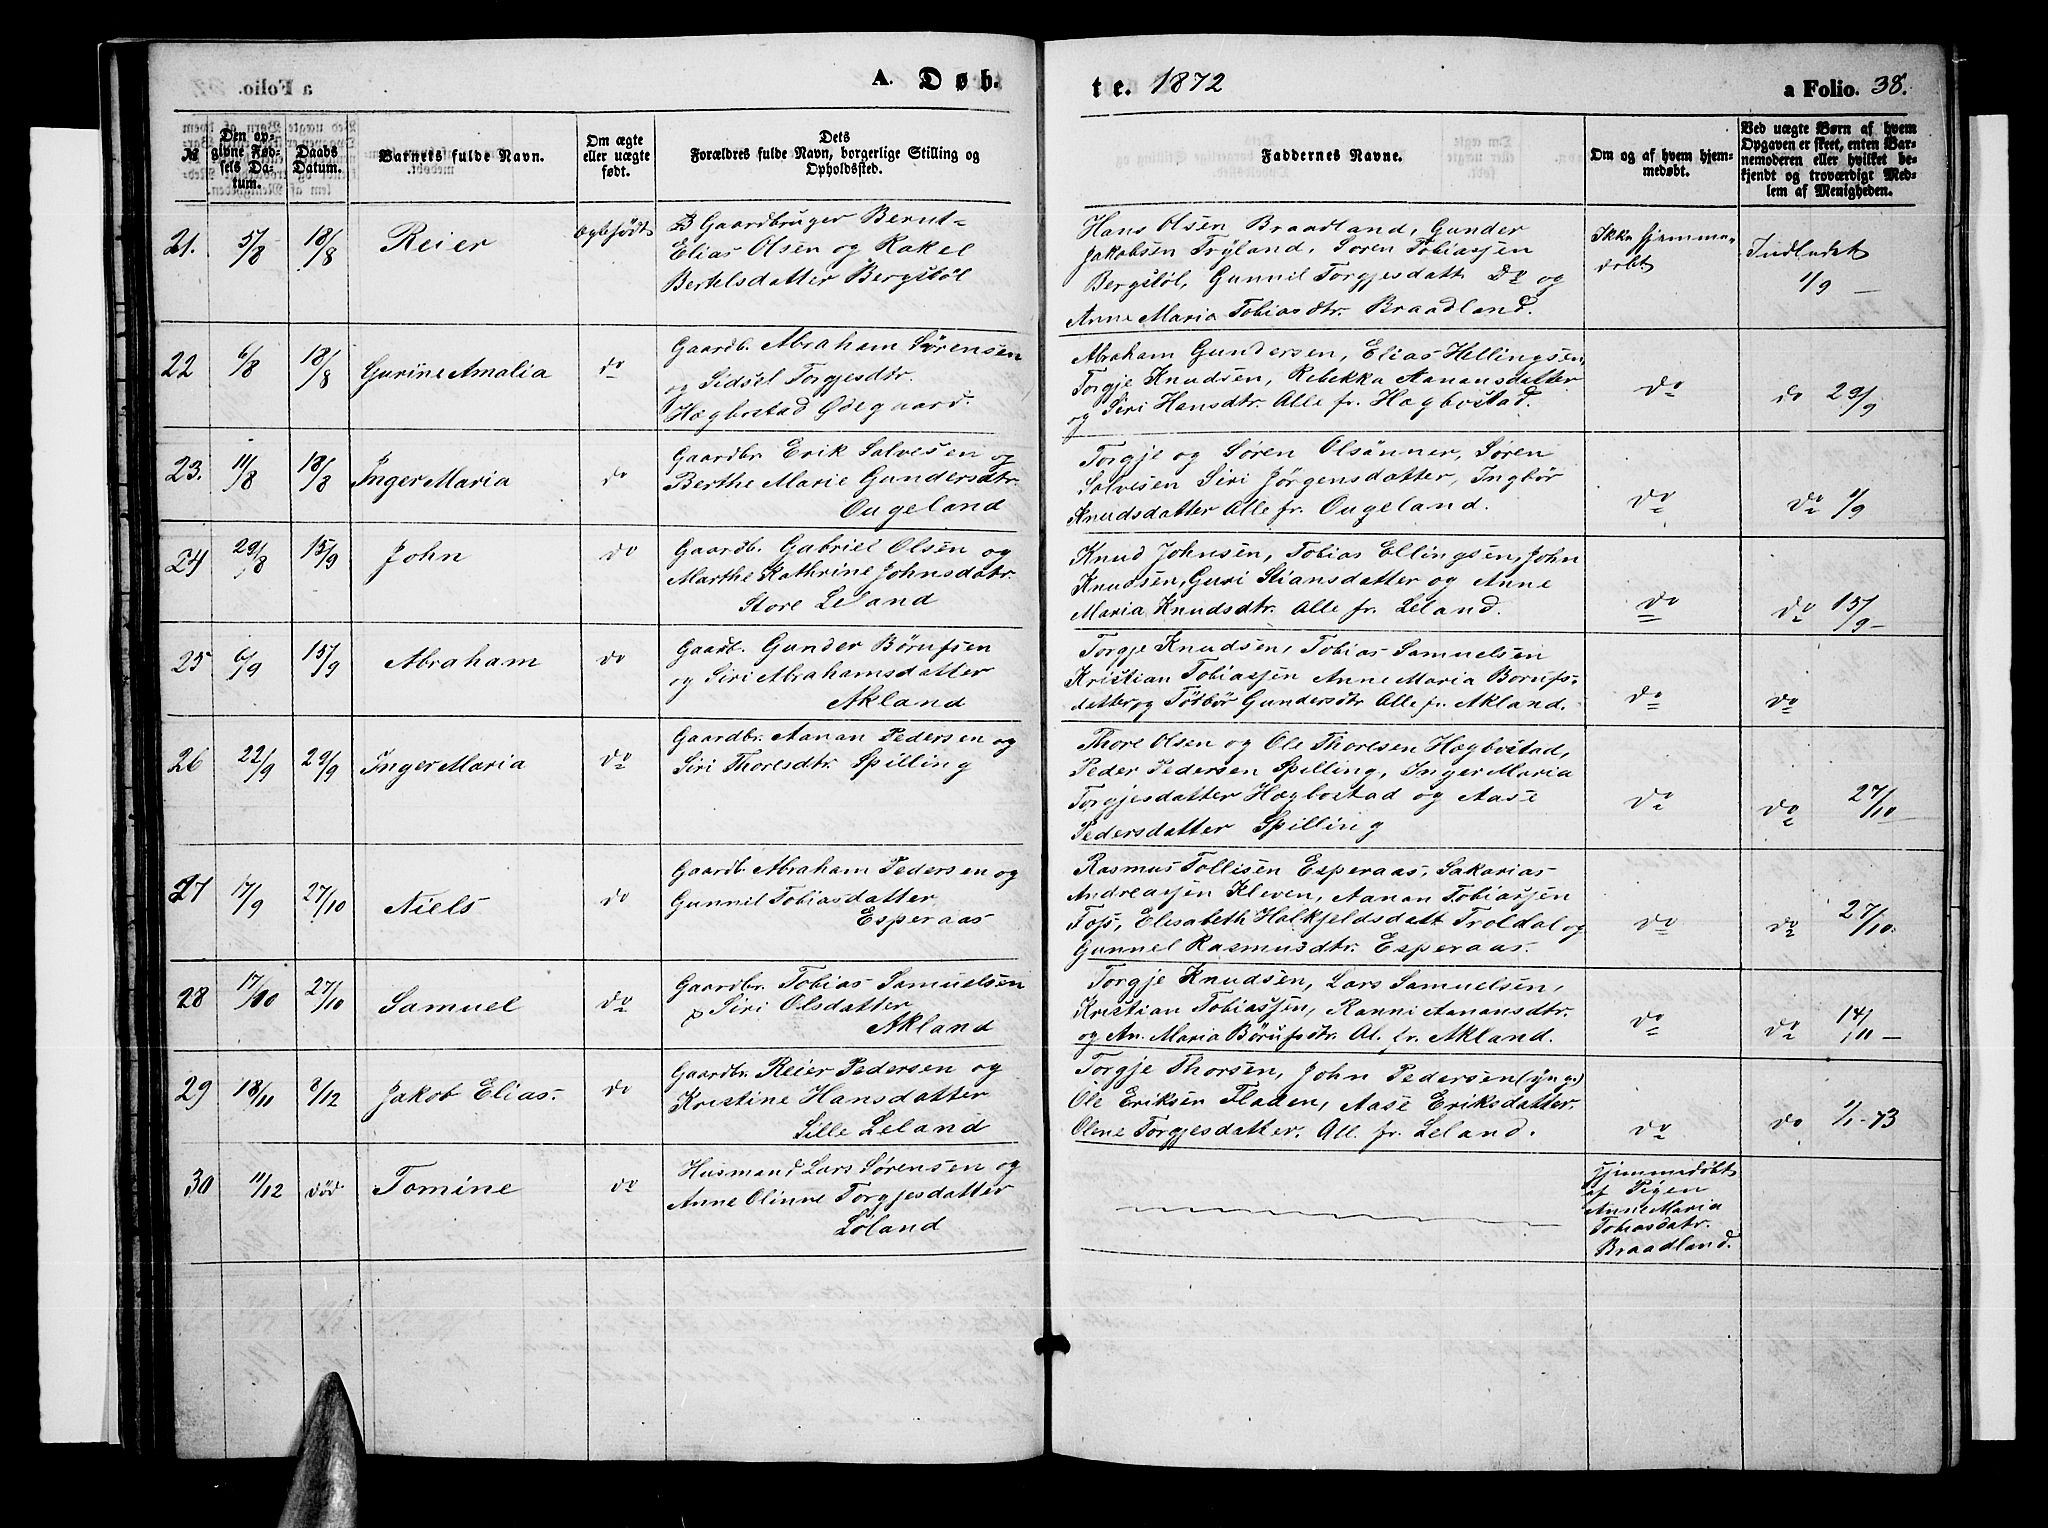 A. Døb-
te. 1872
a Folio. 38.
№
Den op-
givne Fød-
sels Da-
tum.
Daabs
Datum.
Barnets fulde Navn.
Om ægte
eller uægte
født.
Dets
Forældres fulde Navn, borgerlige Stilling og
Opholdssted.
Faddernes Navne.
Om og af hvem hjem-
medøbt.
Ved uægte Børn af hvem
Opgaven er skeet, enten Bar-
nemoderen eller hvilket be-
kjendt og troværdigt Med-
lem af Menigheden.
21. 5/8 18/8 Reier
Gaardbruger Bernt
Elias Olsen og Rakel
Bertelsdatter Bergstøl
Hans Olsen Braadland, Gunder
Jakobsen Tryland, Søren Tobiassen
Bergstøl, Gunnil Torgjesdatt. Do og
Anne Maria Tobiasdtr. Braadland.
Ikke hjemme-
døbt
Indledet
1/9 —
22 6/8 18/8 Gurine Amalia do
Gaardb. Abraham Sørensen
og Sidsel Torgjesdtr.
Hægbostad Ødegaard.
Abraham Gundersen, Elias Hellingsen,
Torgje Knudsen, Rebekka Aanansdatter
og Siri Hansdtr. Alle fr. Hægbostad.
do
do 29/9
23. 11/8 18/8 Inger Maria do
Gaardbr. Erik Salvesen og
Berthe Marie Gundersdtr.
Ougeland
Torgje og Søren Olsønner, Søren
Salvesen Siri Jørgensdatter, Ingbør
Knudsdatter Alle fr. Ougeland.
do
do 1/9
24 29/8 15/9 John do
Gaardb. Gabriel Olsen og
Marthe Kathrine Johnsdatr.
Store Leland
Knud Johnsen, Tobias Ellingsen, John
Knudsen, Guri Stiansdatter og Anne
Maria Knudsdtr. Alle fr. Leland.
do
do 15/9 —
25 6/9 15/9 Abraham do
Gaardb. Gunder Børufsen
og Siri Abrahamsdatter
Akland
Torgje Knudsen, Tobias Samuelsen
Kristian Tobiassen Anne Maria Børufs-
datter og Tørbør Gundersdtr Alle fr. Akland.
do
do
26 22/9 29/9 Inger Maria do
Gaardbr. Aanan Pedersen og
Siri Thoresdtr. Spilling
Thore Olsen og Ole Thoresen Hægbostad,
Peder Pedersen Spilling, Inger Maria
Torgjesdatter Hægbostad og Aase
Pedersdatter Spilling
do
do 27/10
27 17/9 27/10 Niels do
Gaardb. Abraham Pedersen og
Gunnil Tobiasdatter
Esperaas
Rasmus Tollisen Esperaas, Sakarias
Andreassen Kleven, Aanan Tobiassen
Foss, Elesabeth Halkjeldsdatt Troldal og
Gunnel Rasmusdtr. Esperaas.
do
do 27/10.
28 17/10 27/10 Samuel do
Gaardbr. Tobias Samuelsen
& Siri Olsdatter
Akland
Torgje Knudsen, Lars Samuelsen,
Kristian Tobiassen, Ranni Aanansdtr.
og An. Maria Børufsdtr. Al. fr. Akland.
do
do 14/11 —
29 18/11 8/12 Jakob Elias. do
Gaardbr. Reier Pedersen og
Kristine Hansdatter
Lille Leland
Torgje Thorsen, John Pedersen (yngr)
Ole Eriksen Fladen, Aase Eriksdatter.
Olene Torgjesdatter. All. fr. Leland.
do
do 1/1-73
30 11/12 død. Tomine do
Husmand Lars Sørensen og
Anne Olinne Torgjesdatter
Løland
Hjemmedøbt
af Pigen
Anne Maria
Tobiasdatr.
Braadland.